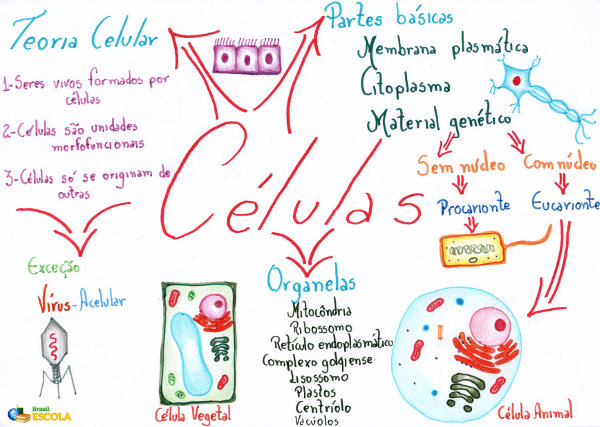 Teoria Celular
1-Seres vivos formados por
células
2-Células são unidades
morfofuncionais
3-Células só se originam de
outras
Exceção
Vírus-Acelular
Partes básicas
Membrana plasmática
Citoplasma
Material genético
Sem núcleo
Com núcleo
Procarionte
Eucarionte
Células
Organelas
Mitocôndria
Ribossomo
Retículo endoplasmático
Complexo golgiense
Lisossomo
Plastos
Centríolo
Vacúolos
Célula Vegetal
Célula Animal
Brasil
ESCOLA